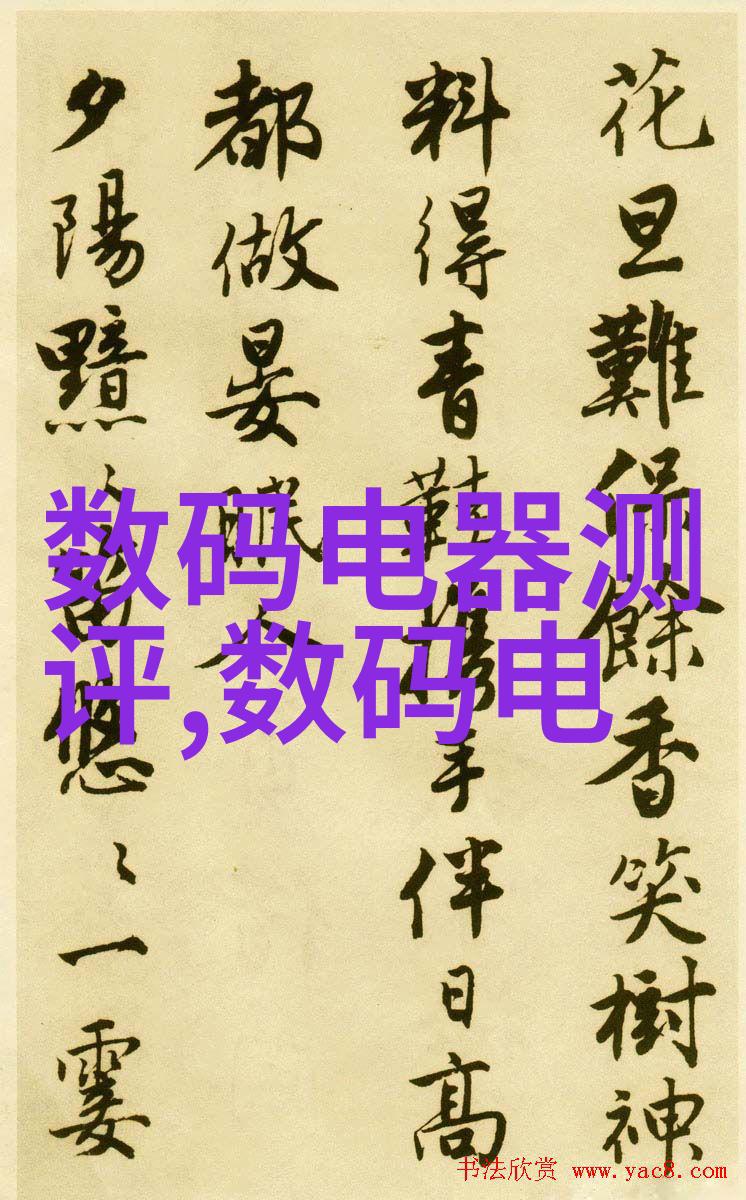 花旦難保餘香笑樹神
料得青鞋攜手伴日高
都做晏眠人
夕陽黯黯話悠悠一霎
数码电器测
评,数码电
书法欣赏 www.yac8.com